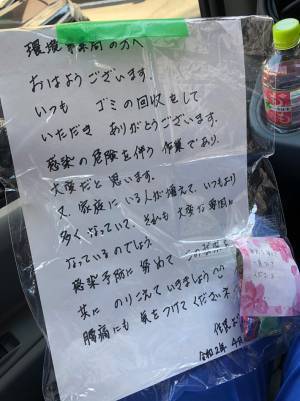 環境事業局の方へ
おはようございます。
いつも ゴミの回収をして
いただき ありがとうございます。
感染の危険を伴う 作業であり、
大変だと思います。
又、家族にいる人が増えて、いつもより
多くなっていて、それも 大変な要因に
なっているのでしょう
感染予防に 努めて
共に のりこえていきましょう
腰痛にも 気をつけて ください
住民より
令和2年 4月